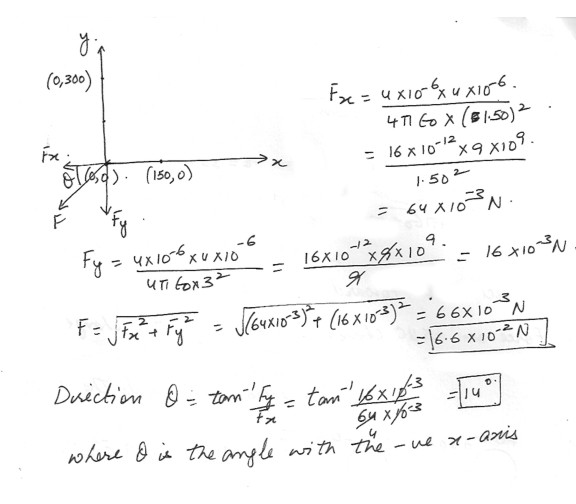 y.
(0,300)
Fx
θ (0,0). (150,0) x
F
Fy.
Fx = 4×10⁻⁶×4×10⁻⁶. / 4π ε0 × (1.50)²
= 16×10⁻¹²×9×10⁹. / 1.50²
= 64×10⁻³ N.
Fy = 4×10⁻⁶×4×10⁻⁶ / 4π ε0×3² = 16×10⁻¹²×9×10⁹. / 9 = 16×10⁻³N
F = √Fx² + Fy² = √(64×10⁻³)² + (16×10⁻³)² = 66×10⁻³ N
= 6.6×10⁻² N
Direction θ = tan⁻¹ Fy/Fx = tan⁻¹ 16×10⁻³/64×10⁻³ = 14°.
4
where θ is the angle with the -ve x-axis